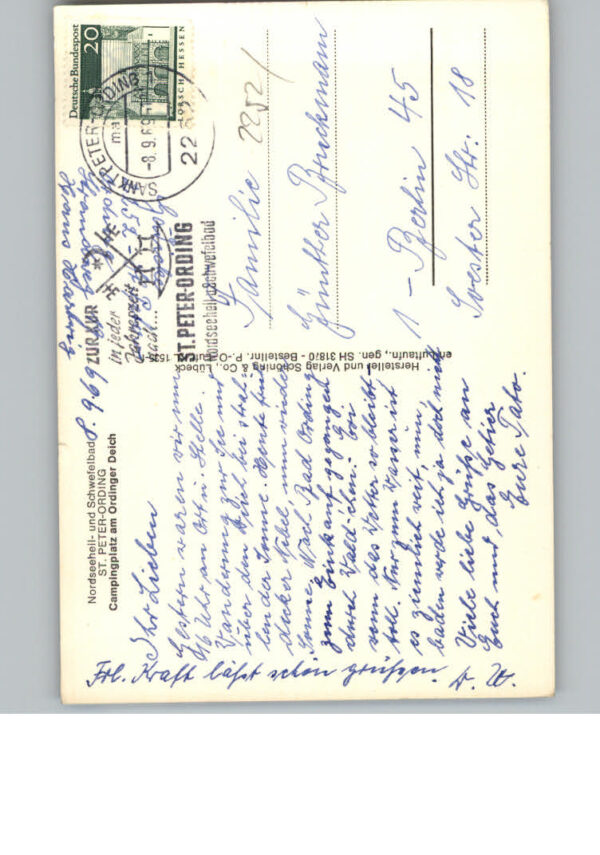 Nordseeheil- und Schwefelbad
ST. PETER-ORDING
Campingplatz am Ordinger Deich
8. 9. 69
Ihr Lieben
Gestern waren wir um
Uhr an Ort u. Stelle.
Wanderung zur See und
über den Deich bei strah-
lender Sonne. Heute früh
dicker Nebel, nun wieder
Sonne. Nach Bad Ording
zum Einkauf gegangen
durch Wäld-chen.
wenn das Wetter so bleibt-
toll. Nur zum Wasser ist
es ziemlich weit, nun,
baden werde ich ja doch nicht
Viele liebe Grüße an
Euch und das Getier
Eure Tato.
Frl. Kraft läßt schön grüssen.
D. W.
Hersteller und Verlag Schöning & Co., Lübeck
gen. SH 318/0 - Bestellnr. P.-O.
Deutsche Bundespost
20
LORSCH/HESSEN
SANKT PETER-ORDING
-8.9.69
ZUR KUR
in jeder
Jahreszeit
nach...
ST. PETER-ORDING
Nordseeheil- u. Schwefelbad
2252
Familie
Günther Bruckmann
1 - Berlin 45
Soester Str. 18